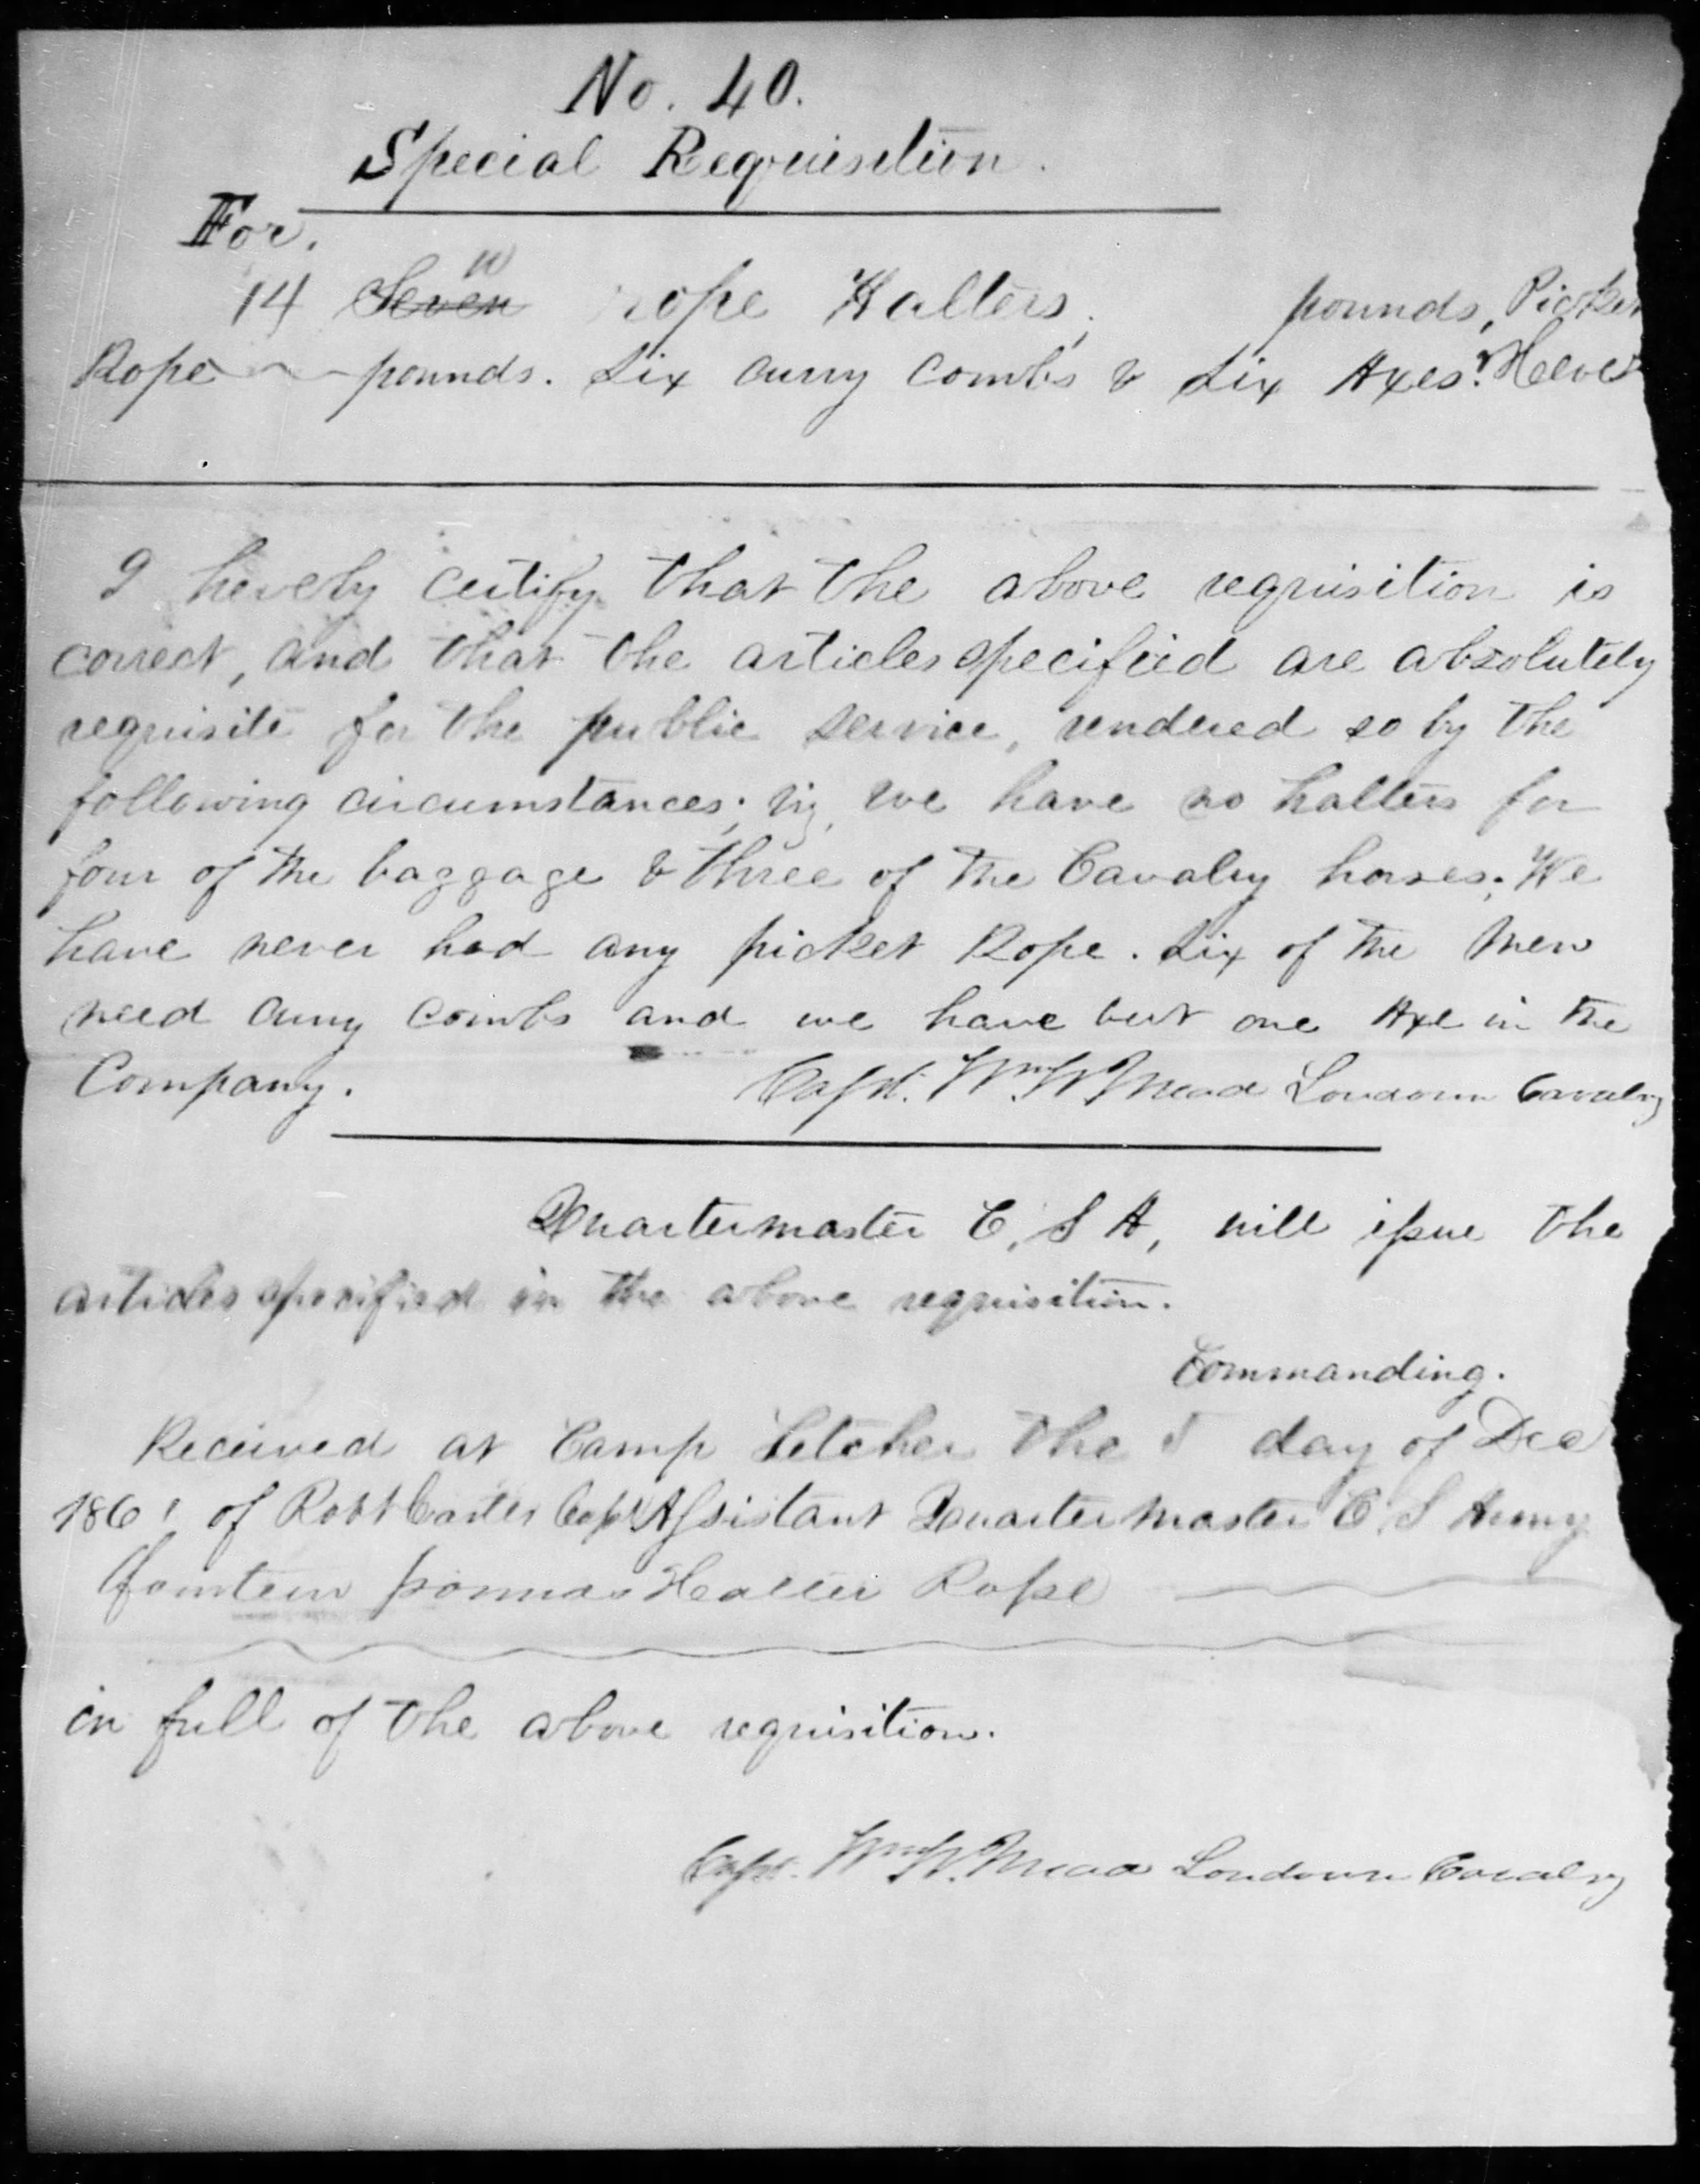 No. 40.
Special Requisition.
For.
14 Seven rope Halters, pounds, Picket
Rope pounds. Six curry combs & Six Axes & Helves
I hereby certify that the above requisition is
correct, and that the articles specified are absolutely
requisite for the public service, rendered so by the
following circumstances; viz, we have no halters for
four of the baggage & three of the Cavalry horses; We
have never had any picket Rope. Six of the Men
need curry combs and we have but one Axe in the
Company. Capt. Wm. W. Mead Loudoun Cavalry
Quartermaster C, S A, will issue the
articles specified in the above requisition.
Commanding.
Received at Camp Letcher the 5 day of Dec
1861 of Robt Carter Capt Assistant Quartermaster C S Army
fourteen pounds Halter Rope
in full of the above requisition.
Capt. Wm. W. Mead Loudoun Cavalry